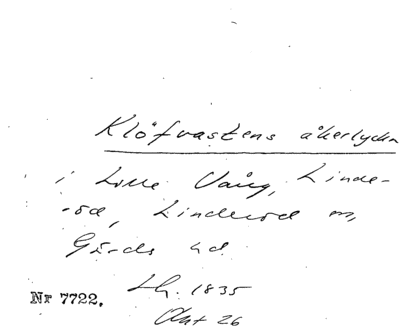 Klöfvastens åkerlycka
i Lille Vång, Linde-
-röd, Linderöd sn,
Gärds hd.
Lh. 1835
Nr 7722.
Okt 26